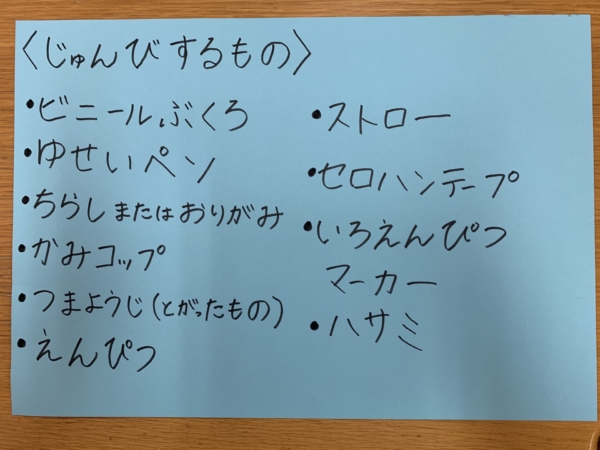 〈じゅんびするもの〉
•ビニールぶくろ
•ゆせいペン
•ちらしまたはおりがみ
•かみコップ
•つまようじ(とがったもの)
•えんぴつ
•ストロー
•セロハンテープ
•いろえんぴつ
マーカー
•ハサミ